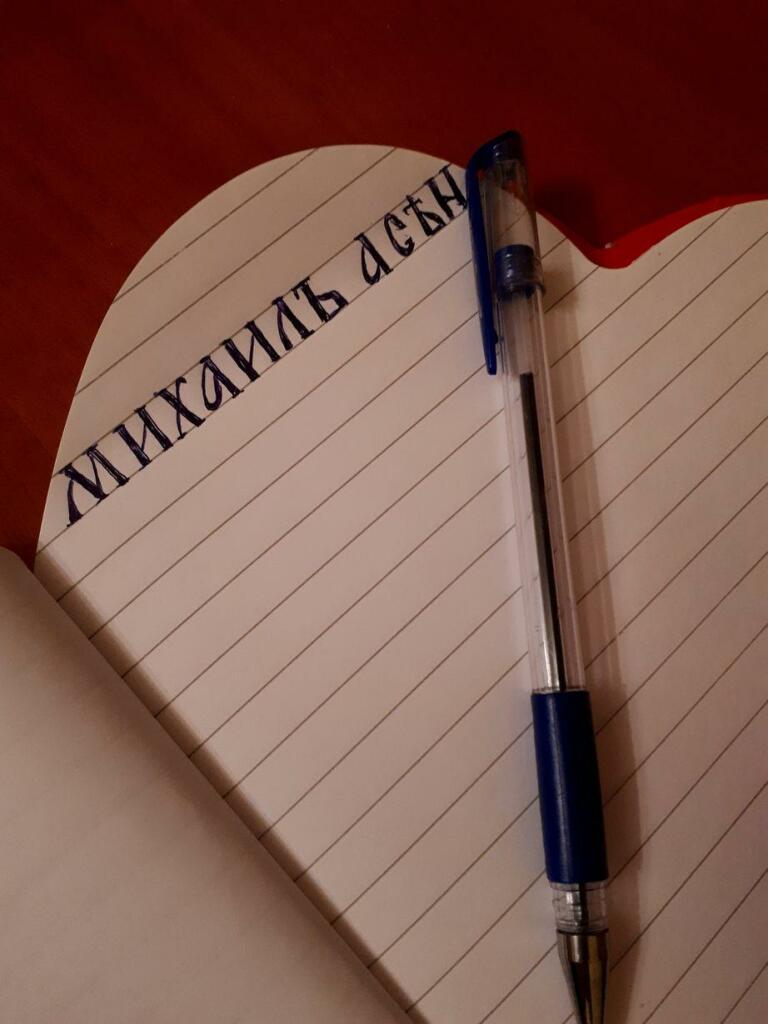 МИХАИЛЪ АСѢН